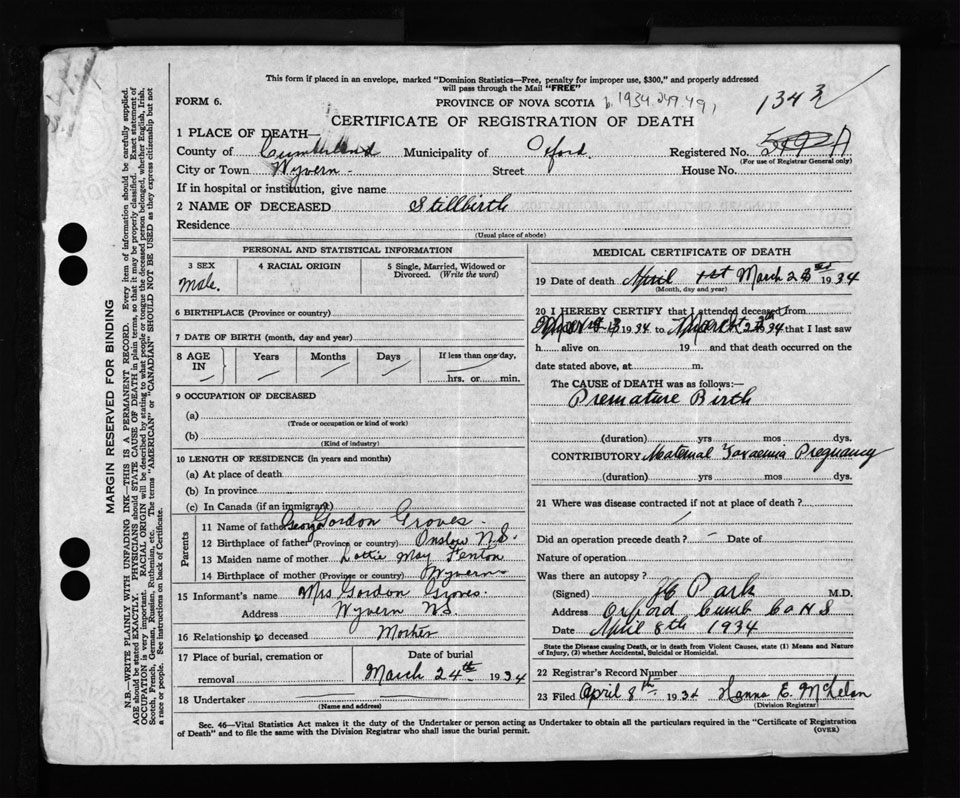 This form if placed in an envelope, marked "Dominion Statistics—Free, penalty for improper use, $300," and properly addressed
will pass through the Mail "FREE"
FORM 6.
PROVINCE OF NOVA SCOTIA
CERTIFICATE OF REGISTRATION OF DEATH
1 PLACE OF DEATH—
County of Cumberland Municipality of Oxford. Registered No.
(For use of Registrar General only)
City or Town Wyvern - Street House No.
If in hospital or institution, give name
2 NAME OF DECEASED Stillbirth
Residence
(Usual place of abode)
PERSONAL AND STATISTICAL INFORMATION
3 SEX 4 RACIAL ORIGIN 5 Single, Married, Widowed or Divorced. (Write the word)
Male.
6 BIRTHPLACE (Province or county)
7 DATE OF BIRTH (month, day and year)
8 AGE IN Years Months Days If less than one day,
hrs. or min.
9 OCCUPATION OF DECEASED
(a)
(Trade or occupation or kind of work)
(b)
(Kind of industry)
10 LENGTH OF RESIDENCE (in years and months)
(a) At place of death
(b) In province
(c) In Canada (if an immigrant)
Parents
11 Name of father George Gordon Groves.
12 Birthplace of father (Province or country) Onslow N.S.
13 Maiden name of mother Lottie May Fenton
14 Birthplace of mother (Province or country) Wyvern
15 Informant's name Mrs Gordon Groves.
Address Wyvern NS.
16 Relationship to deceased Mother
17 Place of burial, cremation or removal
Date of burial
March 24th 1934
18 Undertaker
(Name and address)
MEDICAL CERTIFICATE OF DEATH
19 Date of death April 1st March 23rd 1934
(Month, day and year)
20 I HEREBY CERTIFY that I attended deceased from
1934 to March 34 that I last saw
h alive on 19 and that death occurred on the
date stated above, at m.
The CAUSE of DEATH was as follows:—
Premature Birth
(duration) yrs mos dys.
CONTRIBUTORY Maternal Toxaemia Pregnancy
(duration) yrs mos dys.
21 Where was disease contracted if not at place of death?
Did an operation precede death? - Date of
Nature of operation
Was there an autopsy?
(Signed) Park M.D.
Address Oxford Cumb Co N S
Date April 8th 1934
State the Disease causing Death, or in death from Violent Causes, state (1) Means and Nature
of Injury, (2) whether Accidental, Suicidal or Homicidal.
22 Registrar's Record Number
23 Filed April 8th 1934 Hanna E.
(Division Registrar)
Sec. 46—Vital Statistics Act makes it the duty of the Undertaker or person acting as Undertaker to obtain all the particulars required in the "Certificate of Registration
of Death" and to file the same with the Division Registrar who shall issue the burial permit.
(OVER)
MARGIN RESERVED FOR BINDING
N.B.—WRITE PLAINLY WITH UNFADING INK—THIS IS A PERMANENT RECORD. Every item of information should be carefully supplied.
AGE should be stated EXACTLY. PHYSICIANS should STATE CAUSE OF DEATH in plain terms, so that it may be properly classified. Exact statement of
OCCUPATION is very important. RACIAL ORIGIN will be described by stating to what people or tongue the deceased person belonged, whether English, Irish,
Scotch, French, German, Russian, Ruthenian, etc. The terms "AMERICAN" or "CANADIAN" SHOULD NOT BE USED as they express citizenship but not
a race or people. See instructions on back of Certificate.